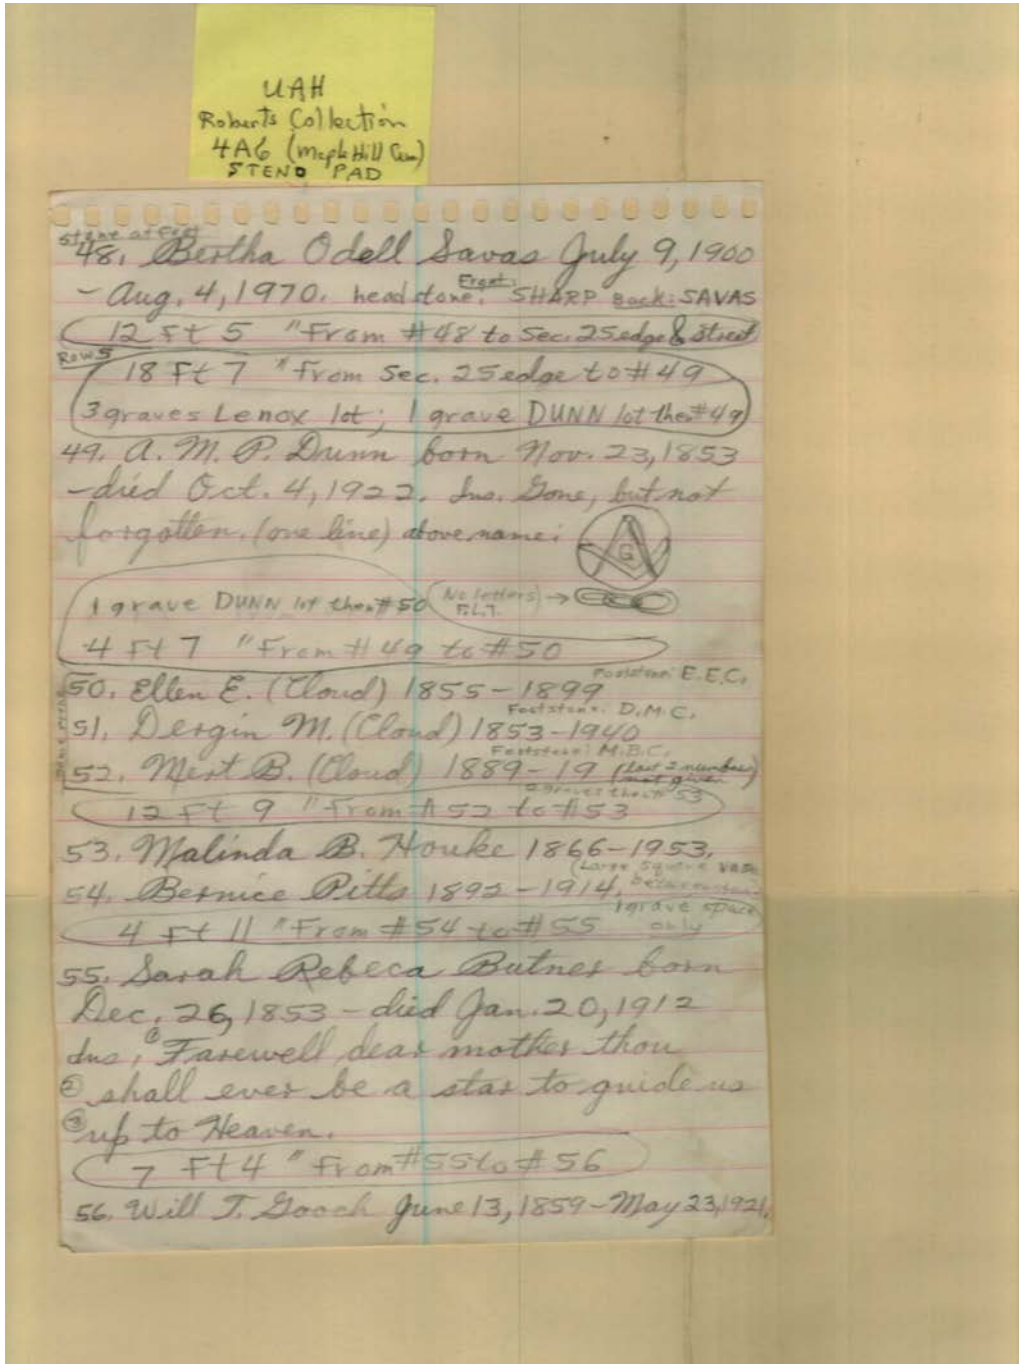 UAH
Roberts Collection
4A6 (Maple Hill Cem)
STENO PAD
Stone at Feet
48. Bertha Odell Savas July 9, 1900
- Aug. 4, 1970. headstone: Front: SHARP Back: SAVAS
12 Ft 5 " From #48 to Sec. 25 edge & street
Row 5
18 Ft 7 " From Sec. 25 edge to #49
3 graves Lenox lot; 1 grave DUNN lot then #49
49. A. M. P. Dunn born Nov. 23, 1853
- died Oct. 4, 1922. Ins. Gone, but not
forgotten. (one line) above name:
G
1 grave DUNN lot then #50 (No letters) →
F.L.T.
4 Ft 7 " From #49 to #50
Footstone: E.E.C.
50. Ellen E. (Cloud) 1855 - 1899
Footstone: D.M.C.
51. Dergin M. (Cloud) 1853 - 1940
Footstone: M.B.C.
52. Mert B. (Cloud) 1889 - 19 (last 2 numbers
not given)
2 graves then #53
12 Ft 9 " From #52 to #53
53. Malinda B. Houke 1866 - 1953.
(Large square vase
54. Bernice Pitts 1892 - 1914.
1 grave space
4 Ft 11 " From #54 to #55 only
55. Sarah Rebeca Butner born
Dec. 26, 1853 - died Jan. 20, 1912
Ins. ① Farewell dear mother thou
② shall ever be a star to guide us
③ up to Heaven.
7 Ft 4 " From #55 to #56
56. Will T. Gooch June 13, 1859 - May 23, 1921.